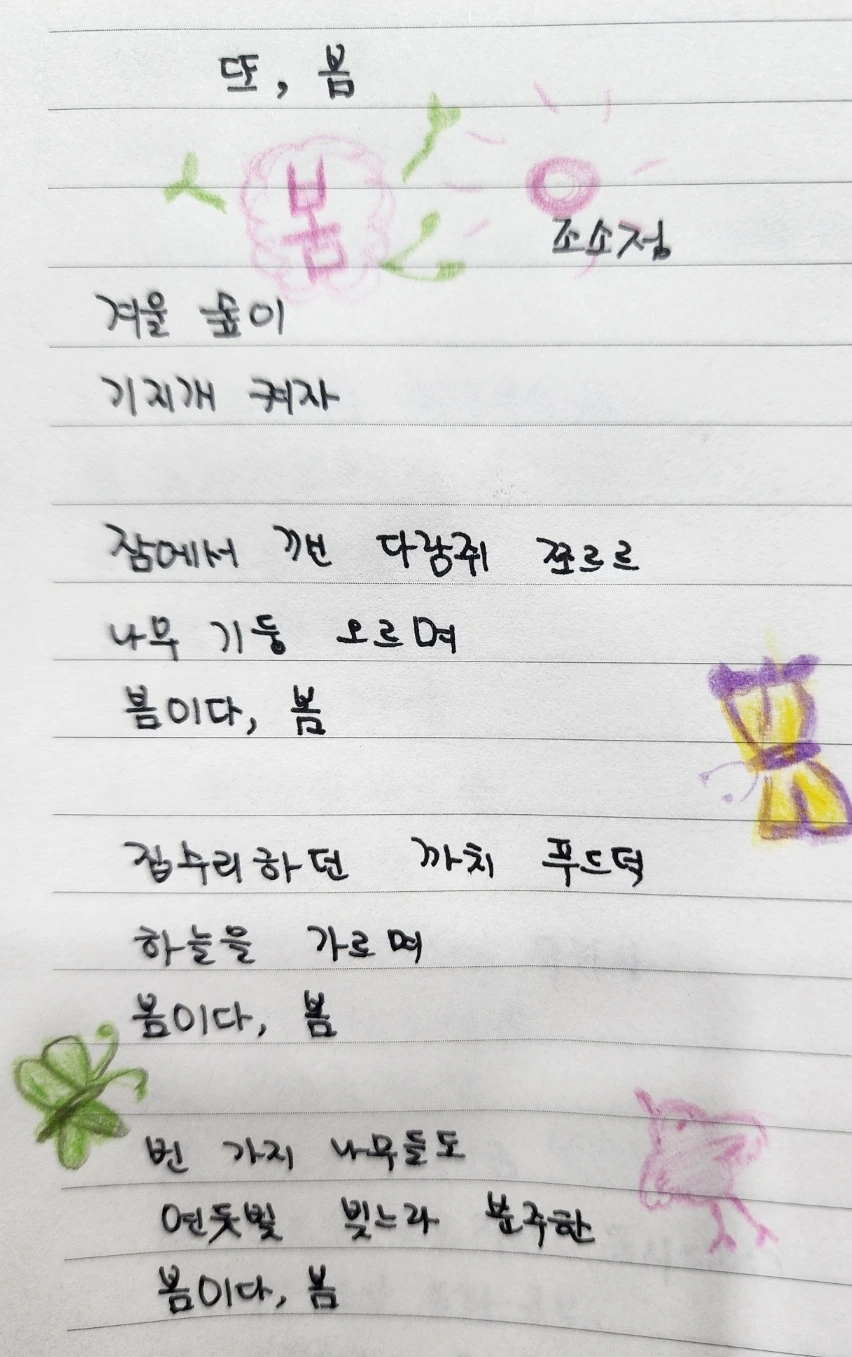 또, 봄
봄
조소정
겨울 숲이
기지개 켜자
잠에서 깬 다람쥐 쪼르르
나무 기둥 오르며
봄이다, 봄
집수리하던 까치 푸드덕
하늘을 가르며
봄이다, 봄
빈 가지 나무들도
연둣빛 빚느라 분주한
봄이다, 봄